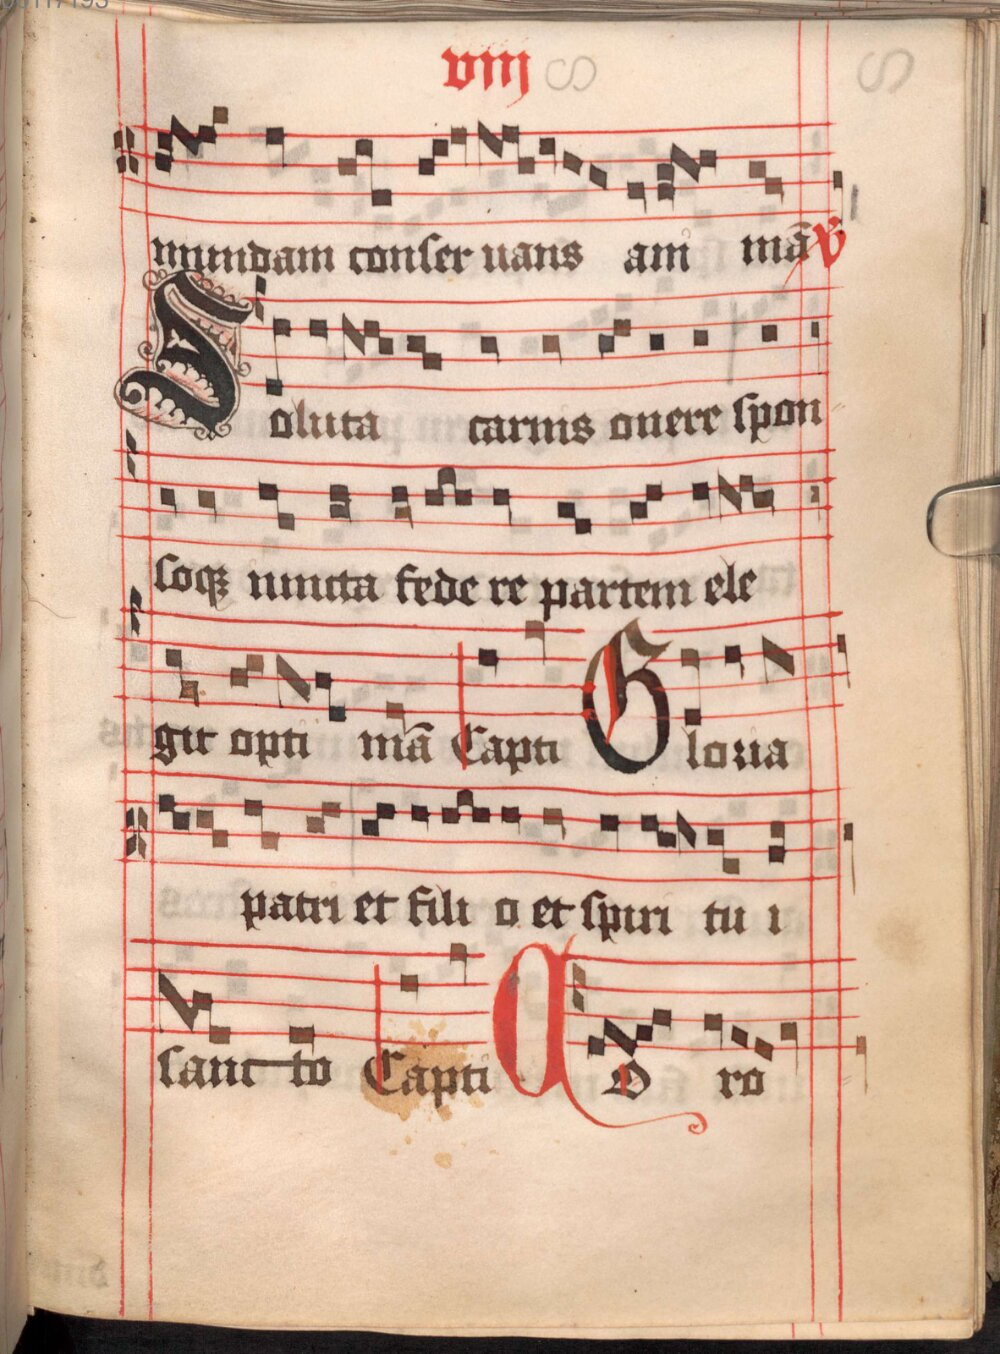 viij
mundam conser uans am mā ℟
Soluta carnis onere spon
soqꝫ iuncta fede re partem ele
git opti mā Capti Gloria
patri et fili o et spiri tu i
sanc to Capti A D ro